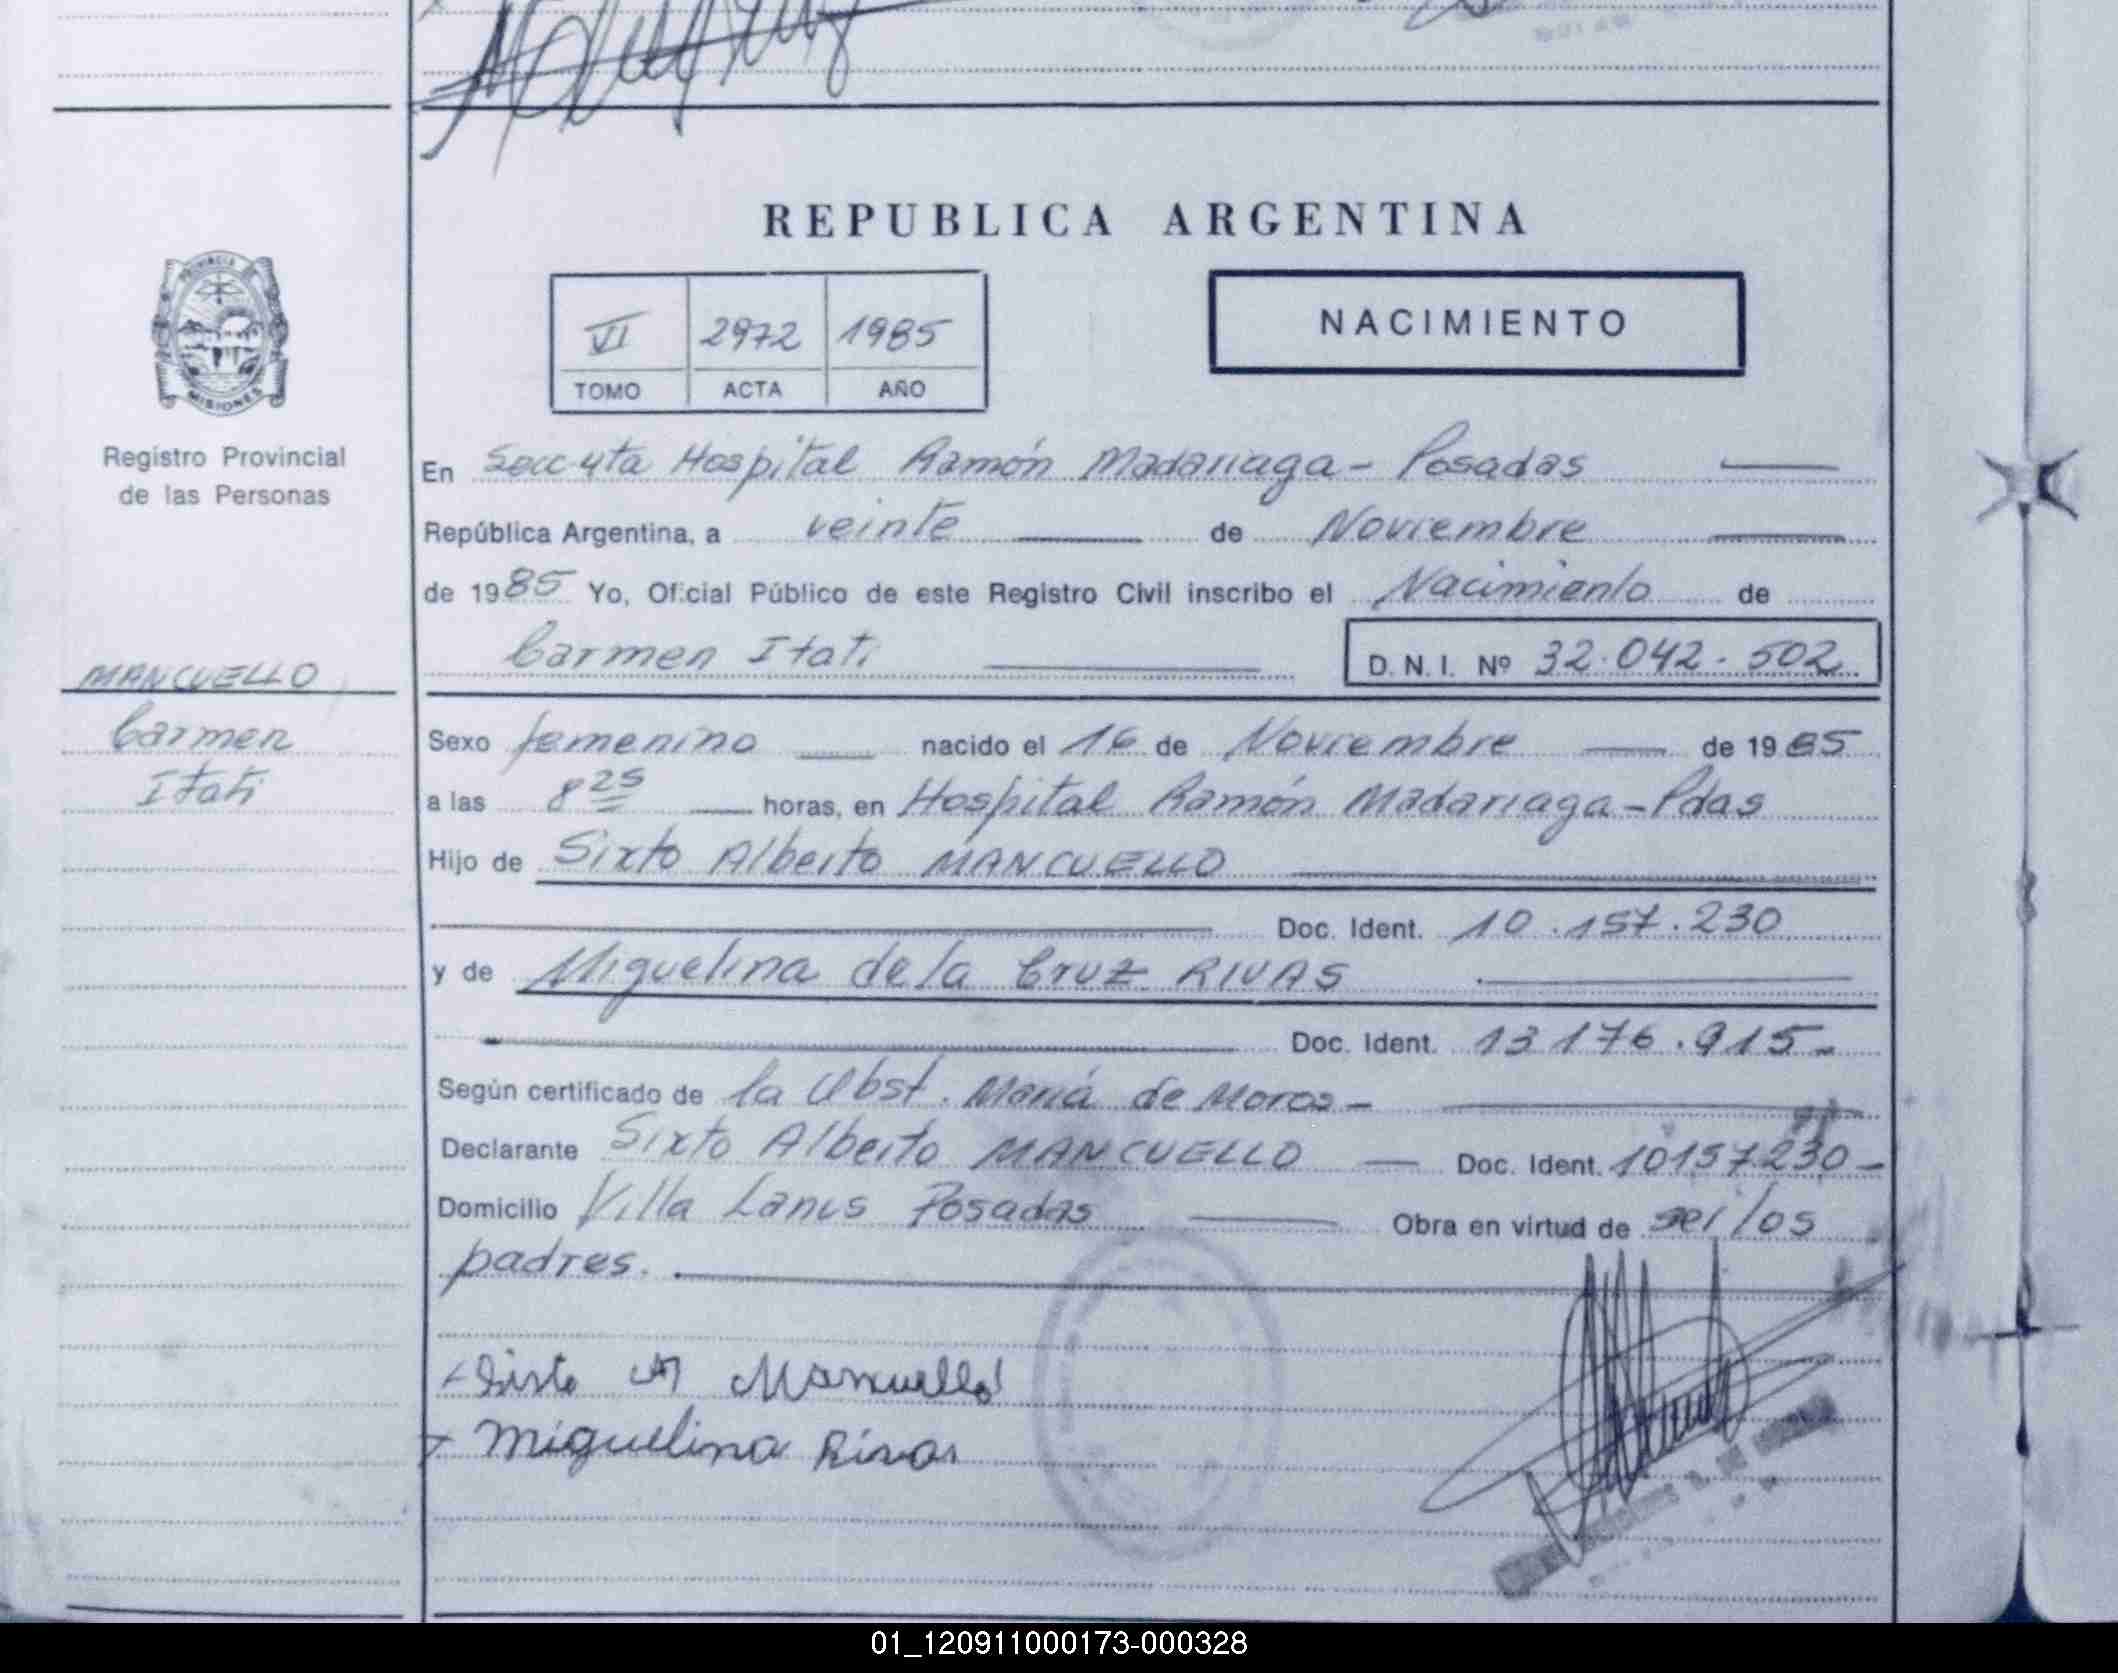 REPUBLICA ARGENTINA
VI 2972 1985
TOMO ACTA AÑO
NACIMIENTO
PROVINCIA
MISIONES
Registro Provincial
de las Personas
MANCUELLO
Carmen
Itati
En Secc 4ta Hospital Ramón Madariaga - Posadas
República Argentina, a veinte de Noviembre
de 1985 Yo, Oficial Público de este Registro Civil inscribo el Nacimiento de
Carmen Itati D. N. I. Nº 32.042.502
Sexo femenino nacido el 16 de Noviembre de 1985
a las 8 25 horas, en Hospital Ramón Madariaga - Pdas
Hijo de Sixto Alberto MANCUELLO
Doc. Ident. 10.157.230
y de Miguelina de la Cruz RIVAS
Doc. Ident. 13 176.915-
Según certificado de la Obst. María de Moros -
Declarante Sixto Alberto MANCUELLO - Doc. Ident. 10157230-
Domicilio Villa Lanus Posadas Obra en virtud de ser los
padres.
Sixto A Mancuello
Miguelina Rivas
01_120911000173-000328